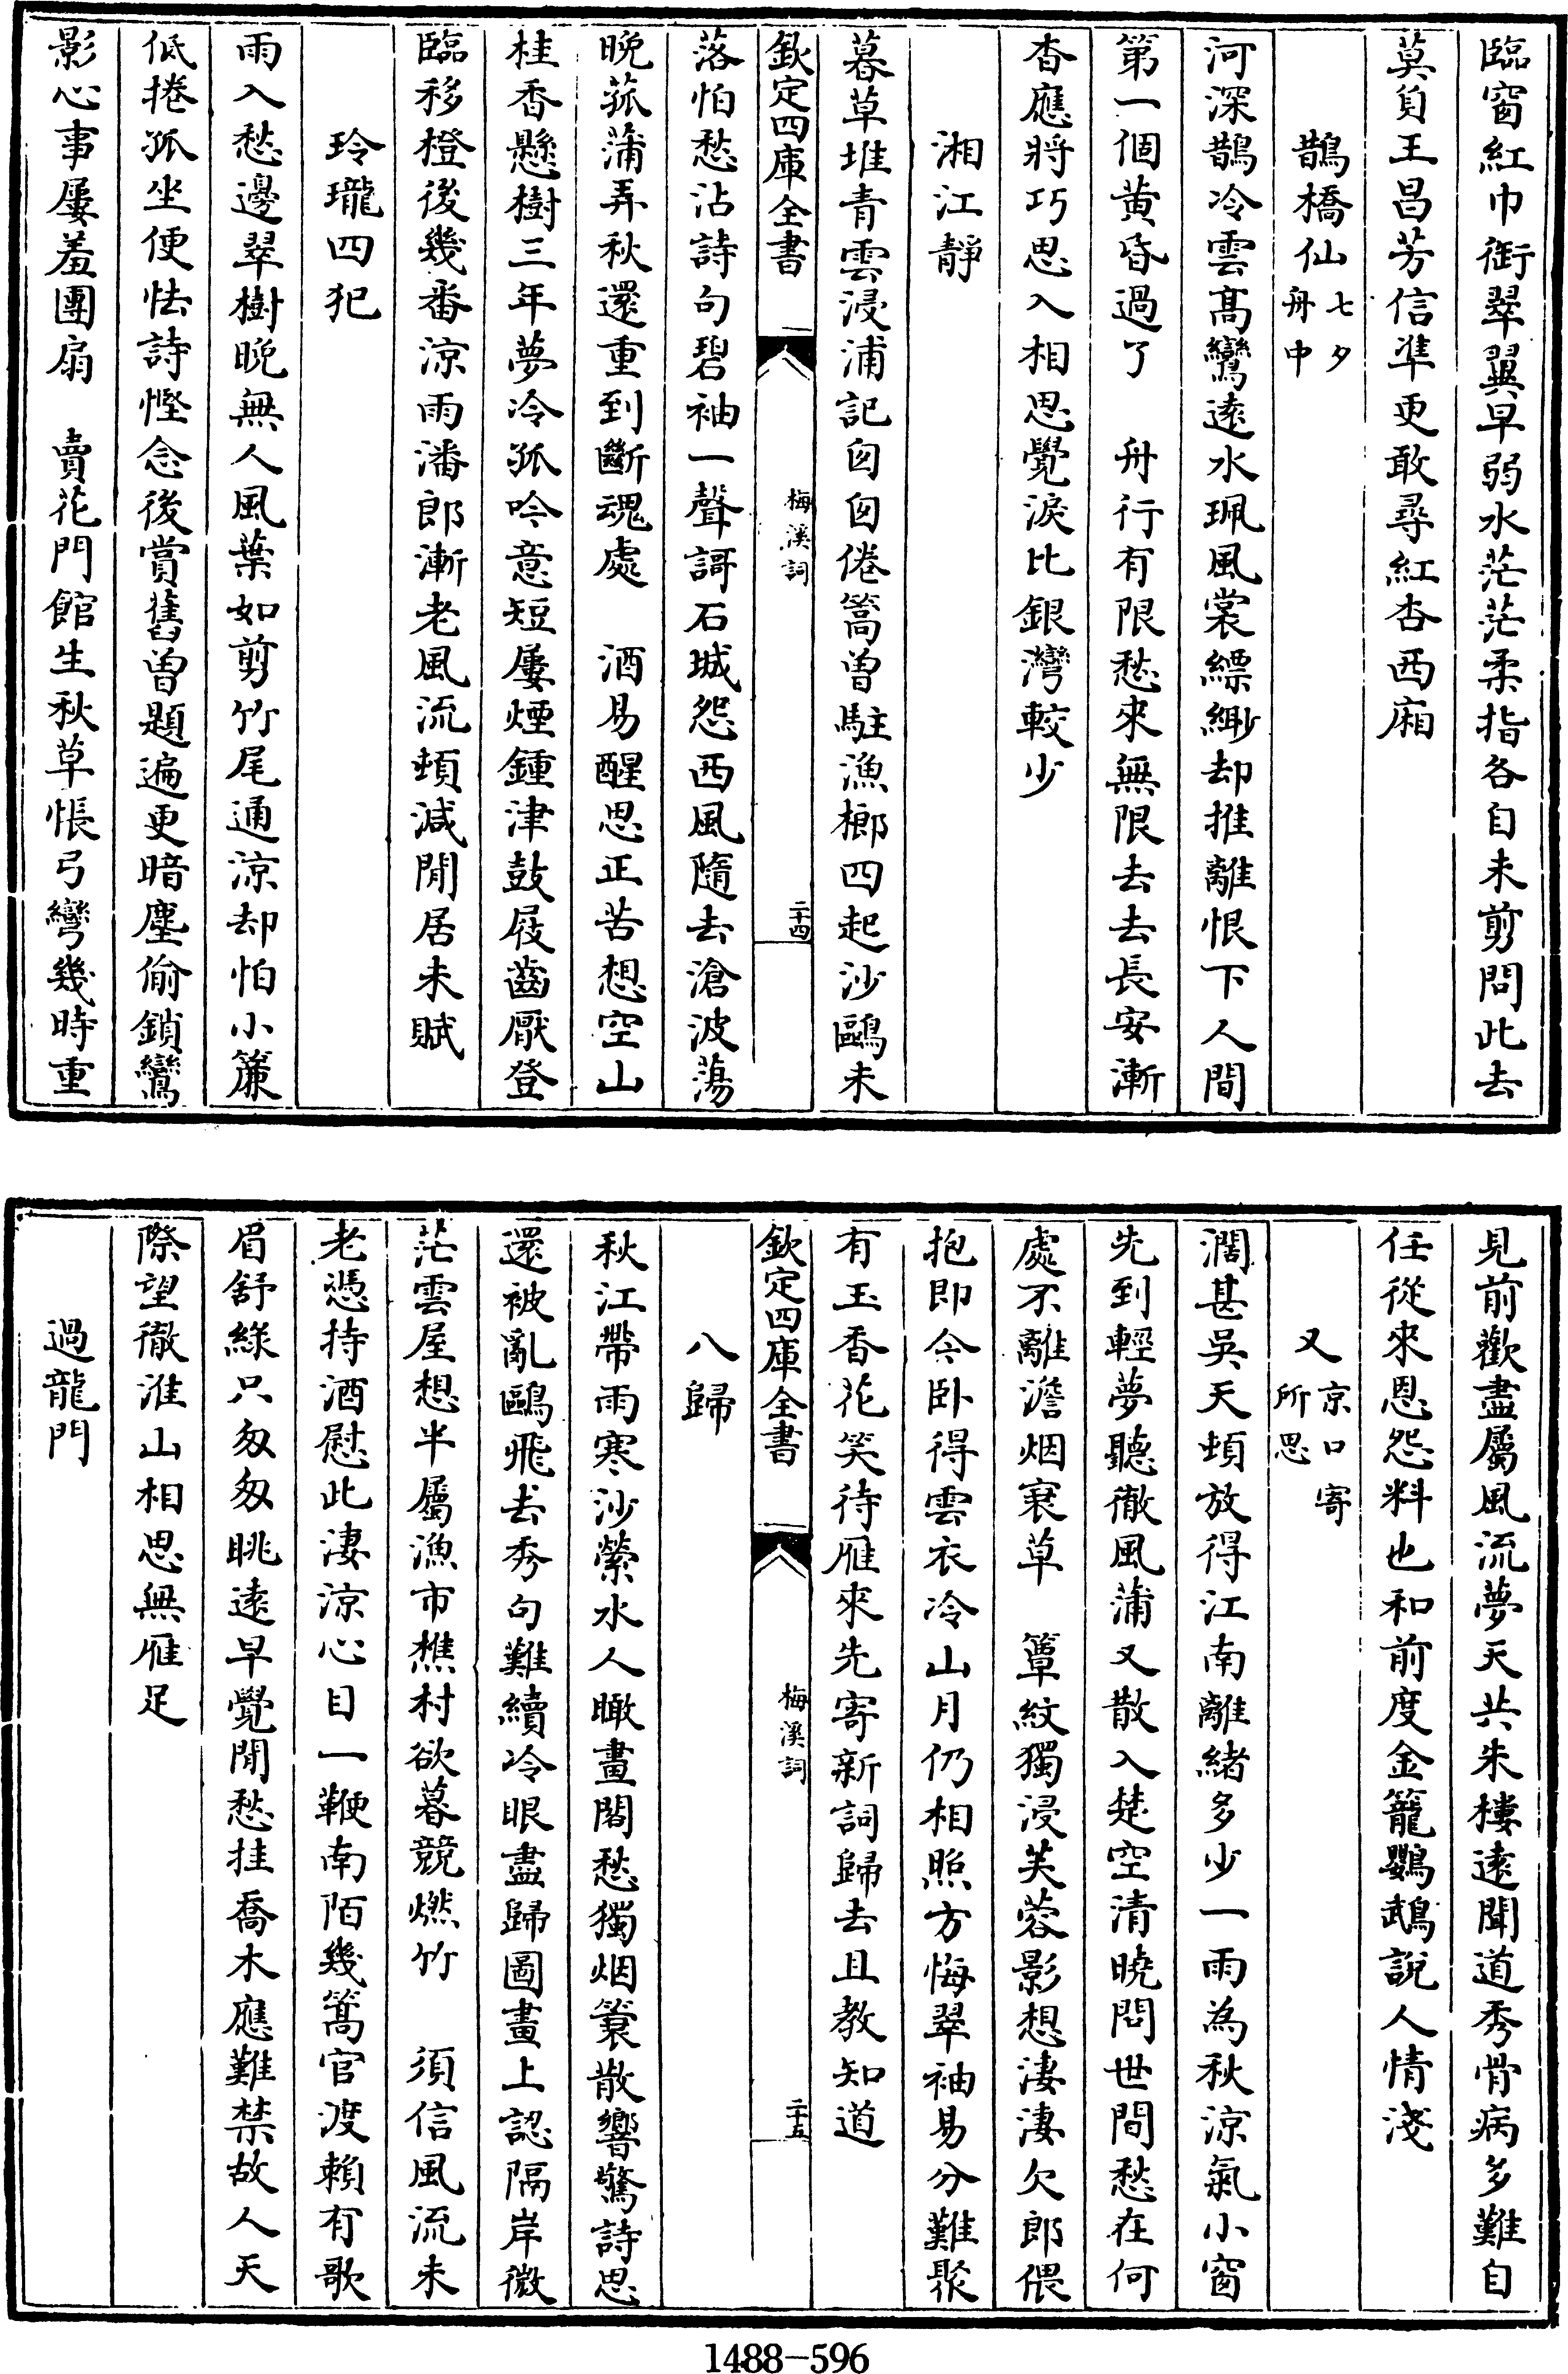 臨窗紅巾銜翠翼早弱水茫茫柔指各自未剪問此去
莫負王昌芳信準更敢尋紅杏西廂
鵲橋仙七夕舟中
河深鵲冷雲髙鸞逺水珮風裳縹緲却推離恨下人間
第一個黄昏過了　舟行有限愁來無限去去長安漸
杳應將巧思入相思覺淚比銀灣較少
湘江靜
暮草堆青雲浸浦記匆匆倦篙曽駐漁榔四起沙鷗未
欽定四庫全書
梅溪詞
二十四
落怕愁沾詩句碧袖一聲謌石城怨西風隨去滄波蕩
晩菰蒲弄秋還重到斷魂處　酒易醒思正苦想空山
桂香懸樹三年夢冷孤吟意短屢煙鍾津鼓屐齒厭登
臨移橙後幾番涼雨潘郎漸老風流頓減閒居未賦
玲瓏四犯
雨入愁邊翠樹晩無人風葉如剪竹尾通涼却怕小簾
低捲孤坐便怯詩慳念後賞舊曽題遍更暗塵偷鎖鸞
影心事屢羞團扇　賣花門館生秋草悵弓彎幾時重
見前歡盡屬風流夢天共朱樓逺聞道秀骨病多難自
任從來恩怨料也和前度金籠鸚鵡說人情淺
又京口寄所思
濶甚吳天頓放得江南離緒多少一雨為秋涼氣小窗
先到輕夢聽徹風蒲又散入楚空清曉問世間愁在何
處不離澹烟衰草　簟紋獨浸芙蓉影想淒淒欠郎偎
抱即今卧得雲衣冷山月仍相照方悔翠袖易分難聚
有玉香花笑待雁來先寄新詞歸去且教知道
欽定四庫全書
梅溪詞
二十五
八歸
秋江帶雨寒沙縈水人瞰畫閣愁獨烟簑散響驚詩思
還被亂鷗飛去秀句難續冷眼盡歸圖畫上認隔岸微
茫雲屋想半屬漁市樵村欲暮競燃竹　須信風流未
老憑持酒慰此淒涼心目一鞭南陌幾篙官渡賴有歌
眉舒綠只匆匆眺逺早覺閒愁挂喬木應難禁故人天
際望徹淮山相思無雁足
過龍門
1488-596